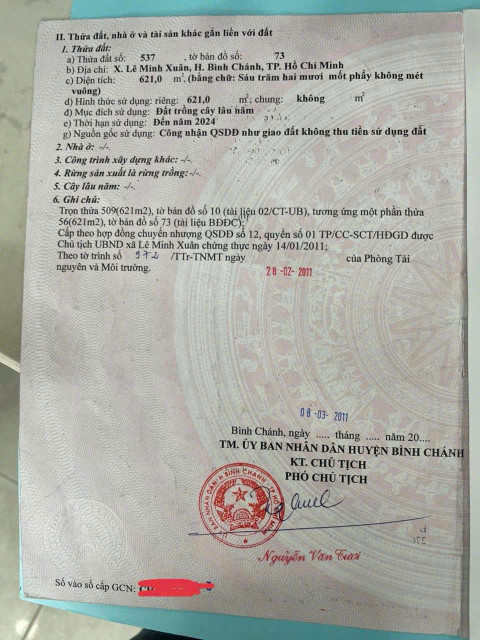 II. Thửa đất, nhà ở và tài sản khác gắn liền với đất
1. Thửa đất:
a) Thửa đất số: 537 , tờ bản đồ số: 73
b) Địa chỉ: X. Lê Minh Xuân, H. Bình Chánh, TP. Hồ Chí Minh
c) Diện tích: 621,0 m², (bằng chữ: Sáu trăm hai mươi mốt phẩy không mét
vuông)
d) Hình thức sử dụng: riêng: 621,0 m²; chung: không m²
đ) Mục đích sử dụng: Đất trồng cây lâu năm
e) Thời hạn sử dụng: Đến năm 2024
g) Nguồn gốc sử dụng: Công nhận QSDĐ như giao đất không thu tiền sử dụng đất
2. Nhà ở: -/-
3. Công trình xây dựng khác: -/-
4. Rừng sản xuất là rừng trồng: -/-
5. Cây lâu năm: -/-
6. Ghi chú:
Trọn thửa 509(621m2), tờ bản đồ số 10 (tài liệu 02/CT-UB), tương ứng một phần thửa
56(621m2), tờ bản đồ số 73 (tài liệu BĐĐC);
Cấp theo hợp đồng chuyển nhượng QSDĐ số 12, quyển số 01 TP/CC-SCT/HĐGD được
Chủ tịch UBND xã Lê Minh Xuân chứng thực ngày 14/01/2011;
Theo tờ trình số 972 /TTr-TNMT ngày 28-02-2011 của Phòng Tài
nguyên và Môi trường.
08-03-2011
Bình Chánh, ngày ..... tháng ..... năm 20....
TM. ỦY BAN NHÂN DÂN HUYỆN BÌNH CHÁNH
KT. CHỦ TỊCH
PHÓ CHỦ TỊCH
ỦY BAN NHÂN DÂN H.BÌNH CHÁNH - TP.HỒ CHÍ MINH
Nguyễn Văn Tươi
Số vào sổ cấp GCN: